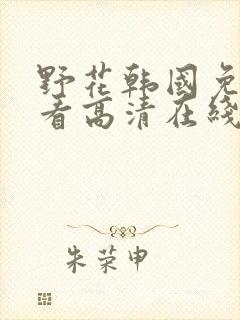 野花韩国免
看高清在线
朱荣申